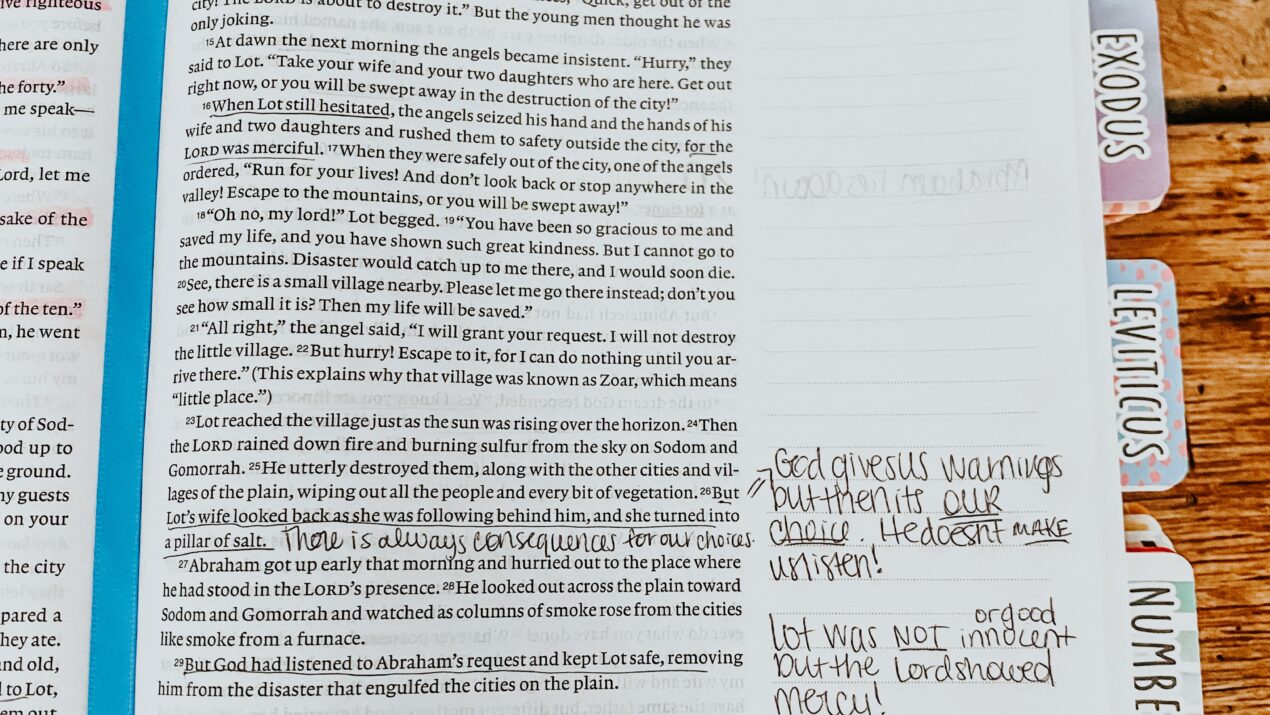 ive righteous
here are only
he forty."
me speak—
Lord, let me
sake of the
e if I speak
of the ten."
n, he went
ty of Sod-
ood up to
e ground.
ny guests
on your
the city
pared a
They ate.
and old,
to Lot,
city! The LORD is about to destroy it." But the young men thought he was
only joking.
15 At dawn the next morning the angels became insistent. "Hurry," they
said to Lot. "Take your wife and your two daughters who are here. Get out
right now, or you will be swept away in the destruction of the city!"
16 When Lot still hesitated, the angels seized his hand and the hands of his
wife and two daughters and rushed them to safety outside the city, for the
LORD was merciful. 17 When they were safely out of the city, one of the angels
ordered, "Run for your lives! And don't look back or stop anywhere in the
valley! Escape to the mountains, or you will be swept away!"
18 "Oh no, my lord!" Lot begged. 19 "You have been so gracious to me and
saved my life, and you have shown such great kindness. But I cannot go to
the mountains. Disaster would catch up to me there, and I would soon die.
20 See, there is a small village nearby. Please let me go there instead; don't you
see how small it is? Then my life will be saved."
21 "All right," the angel said, "I will grant your request. I will not destroy
the little village. 22 But hurry! Escape to it, for I can do nothing until you ar-
rive there." (This explains why that village was known as Zoar, which means
"little place.")
23 Lot reached the village just as the sun was rising over the horizon. 24 Then
the LORD rained down fire and burning sulfur from the sky on Sodom and
Gomorrah. 25 He utterly destroyed them, along with the other cities and vil-
lages of the plain, wiping out all the people and every bit of vegetation. 26 But
Lot's wife looked back as she was following behind him, and she turned into
a pillar of salt. There is always consequences for our choices.
27 Abraham got up early that morning and hurried out to the place where
he had stood in the LORD's presence. 28 He looked out across the plain toward
Sodom and Gomorrah and watched as columns of smoke rose from the cities
like smoke from a furnace.
29 But God had listened to Abraham's request and kept Lot safe, removing
him from the disaster that engulfed the cities on the plain.
God gives us warnings
but then its OUR
choice. He doesnt MAKE
us listen!
or good
Lot was NOT innocent
but the Lord showed
mercy!
EXODUS
LEVITICUS
NUMBE